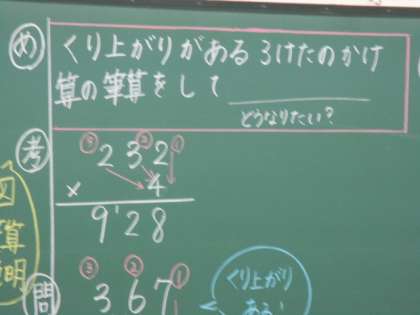 め
くり上がりがある3けたのかけ
算の筆算をして
どうなりたい?
考
③ ② ①
232
× 4
9'28
図
算
明
問
③ ② ①
367
くり上がり
ある!